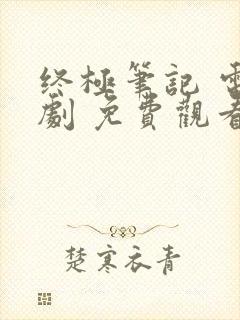 終極筆記 電
劇 免費觀看
楚寒衣青